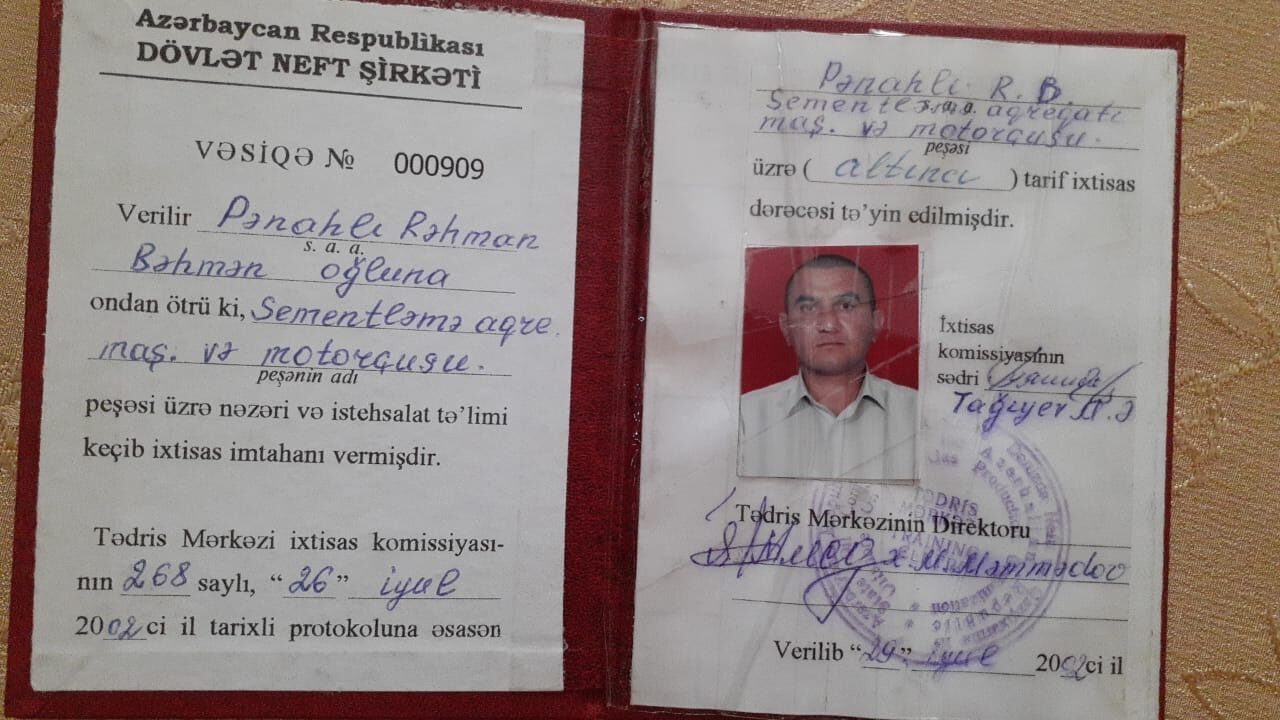 Azərbaycan Respublikası
DÖVLƏT NEFT ŞİRKƏTİ
VƏSİQƏ № 000909
Verilir Pənahlı Rəhman
s. a. a.
Bəhmən oğluna
ondan ötrü ki, Sementləmə aqre.
maş. və motorçusu.
peşənin adı
peşəsi üzrə nəzəri və istehsalat tə’limi
keçib ixtisas imtahanı vermişdir.
Tədris Mərkəzi ixtisas komissiyası-
nın 268 saylı, “26” iyul
2002 ci il tarixli protokoluna əsasən
Pənahlı R. B.
s. a. a.
Sementləmə aqreqatı
maş. və motorçusu.
peşəsi
üzrə ( altıncı ) tarif ixtisas
dərəcəsi tə’yin edilmişdir.
İxtisas
komissiyasının
sədri
Tağıyev Ə
Tədris Mərkəzinin Direktoru
X. M. Məmmədov
TƏDRİS
MƏRKƏZİ
TRAINING
Verilib “29” iyul 2002ci il